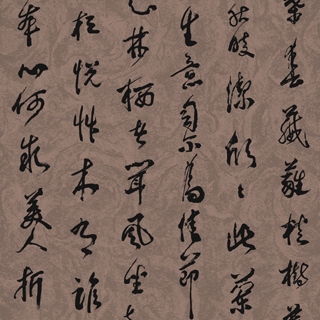 葉春葳蕤桂
秋皎潔欣欣此
生意自尔為佳節
林栖者聞風坐
相悦草木有
本心何求美人折